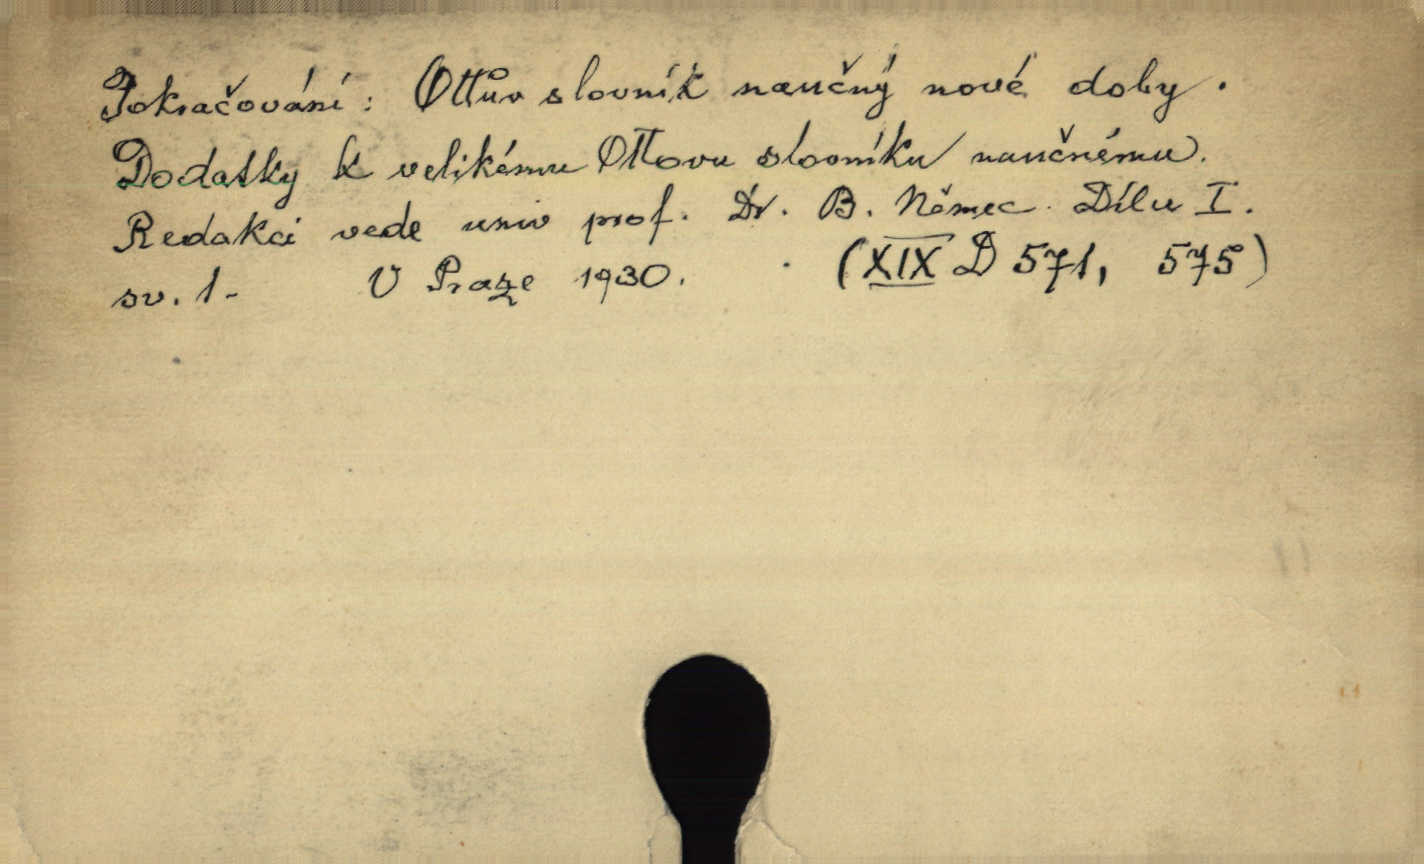 Pokračování: Ottův slovník naučný nové doby.
Dodatky k velikému Ottovu slovníku naučnému.
Redakci vede univ prof. Dr. B. Němec. Dílu I.
sv. 1. V Praze 1930. (XIX D 571, 575)